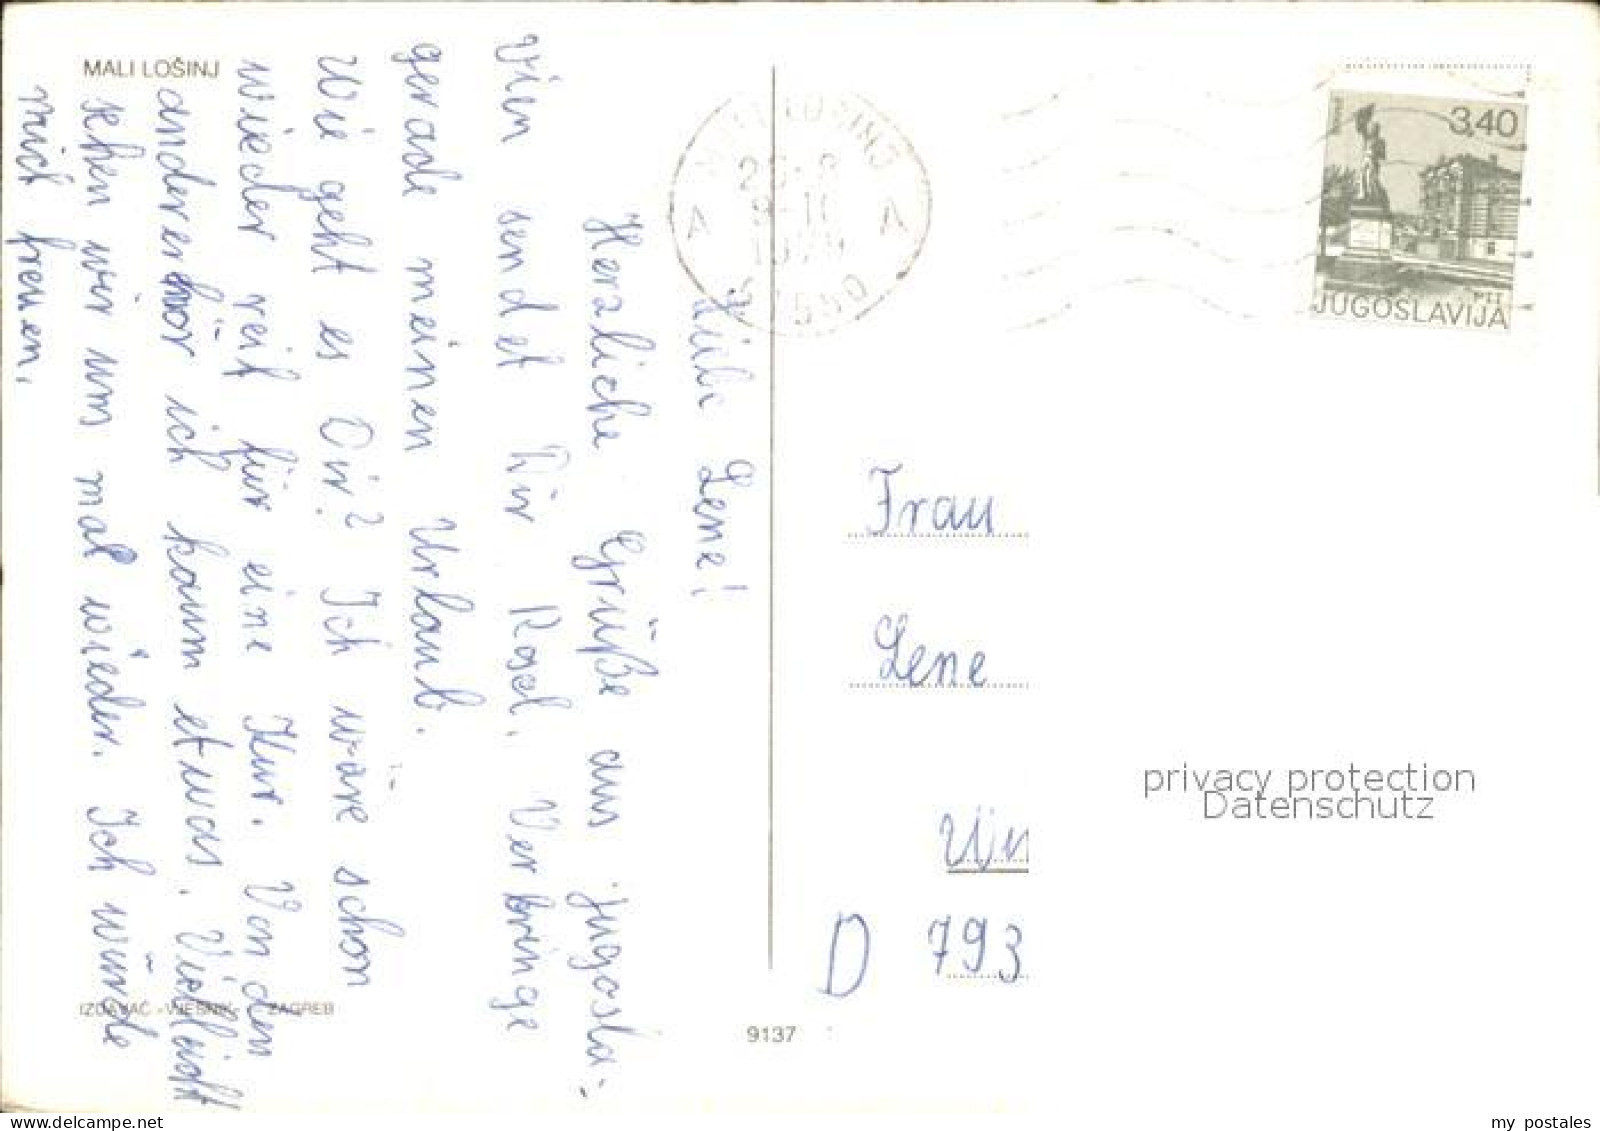 MALI LOŠINJ
Liebe Lene!
Herzliche Grüße aus jugosla-
vin sendet Dir Rosl. Verbringe
gerade meinen Urlaub.
Wie geht es Dir? Ich wäre schon
wieder reif für eine Kur. Von den
anderen hör ich kaum etwas. Vielleicht
sehen wir uns mal wieder. Ich würde
mich freuen.
IZDAVAČ »VJESNIK« ZAGREB
9137
LOŠINJ
A
A
3,40
JUGOSLAVIJA
Frau
Lene
D 793
privacy protection
Datenschutz
www.ansichtskarten-center.de
my postales